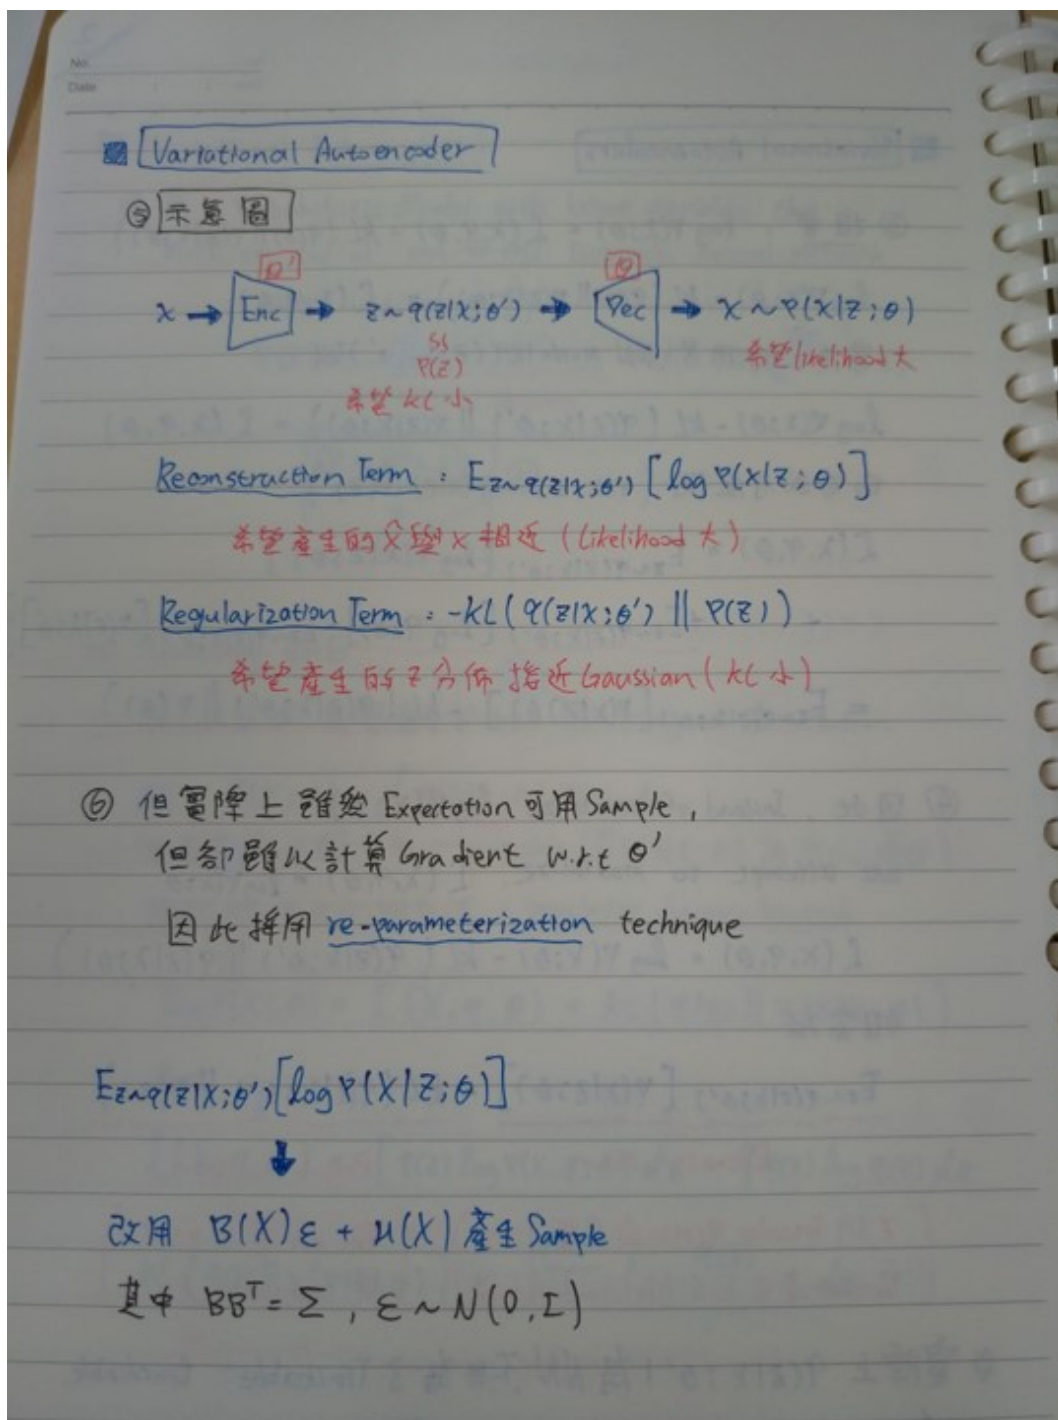 No.
Date
Variational Autoencoder
⑤ 示意圖
θ' θ
x → Enc → z~q(z|x;θ') → Dec → x~P(x|z;θ)
SS
P(z)
希望likelihood大
希望KL小
Reconstruction Term : E z~q(z|x;θ') [log P(x|z;θ)]
希望產生的 x̂ 與 x 相近 (Likelihood 大)
Regularization Term : -KL(q(z|x;θ') || P(z))
希望產生的 z 分佈接近Gaussian (KL 小)
⑥ 但實際上雖然 Expectation 可用 Sample,
但卻難以計算 Gradient w.r.t θ'
因此採用 re-parameterization technique
E z~q(z|X;θ') [log P(X|z;θ)]
↓
改用 B(X)ε + μ(X) 產生 Sample
其中 BBᵀ = Σ, ε ~ N(0, I)